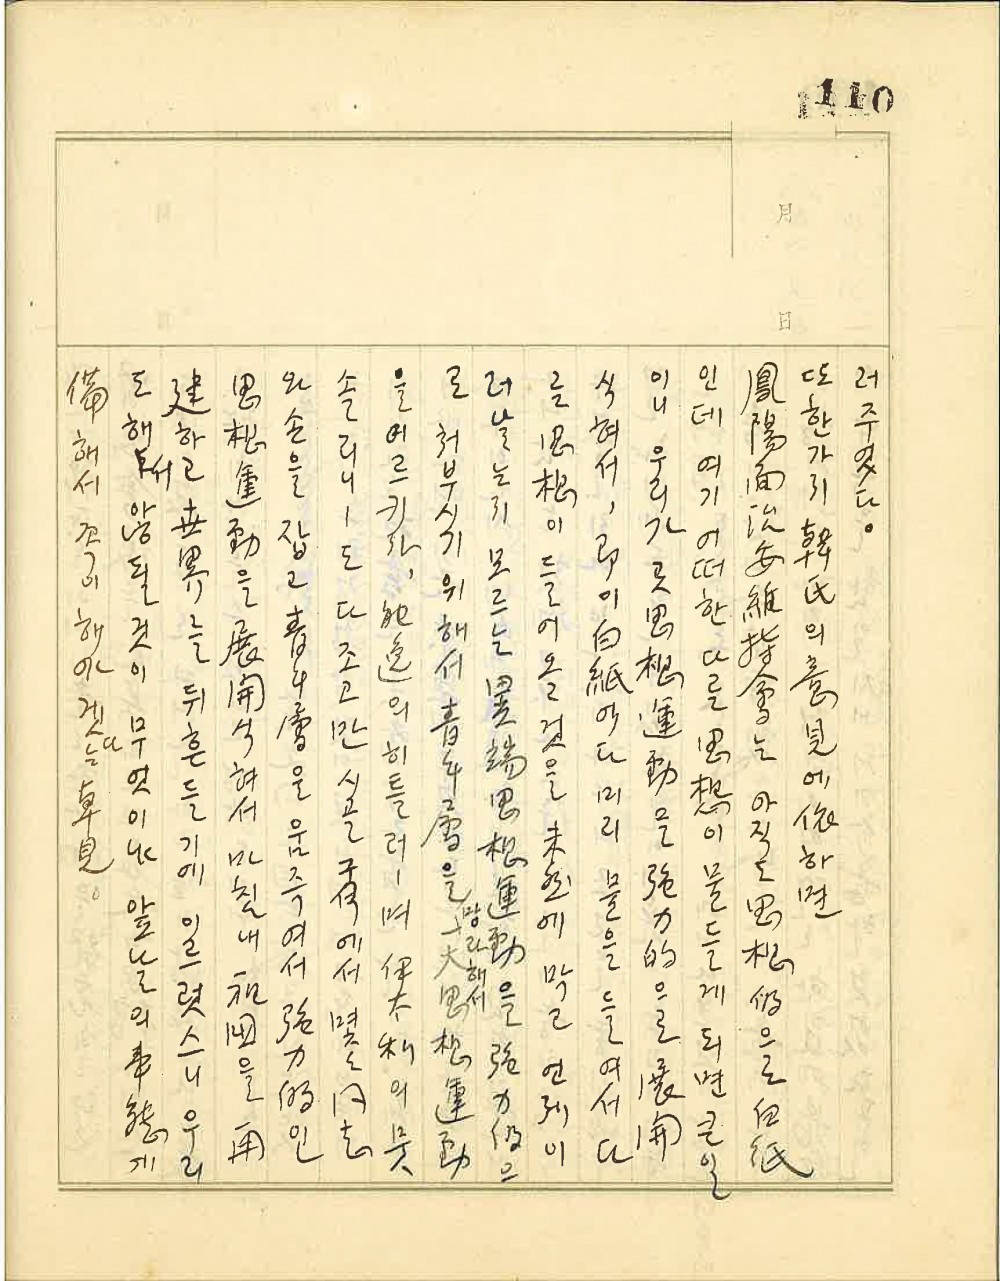 110
月
日
러주엇다。
또한가지 韓氏의 意見에依하면
鳳陽面治安維持會는 아직도思想的으로白紙
인데 여기어떠한다른思想이물들게되면큰일
이니 우리가 곳思想運動을强力的으로展開
식혀서, 即이白紙에다미리물을들여서다
른思想이들어올것을未然에막고언제이
러날는지모르는異端思想運動을强力的으
로처부시기위해서靑年層을망라해서大思想運動
을이르키자,   의히틀러ー며伊太利의뭇
솔리니ー도다조고만시골   에서몇々同志
와손을잡고靑年層을움즉여서强力的인
思想運動을展開식혀서마침내祖國을再
建하고世界를뒤흔들기에이르럿스니우리
도해서않될것이무엇이냐앞날의事態에
備해서꼭이해야겟다는卓見。